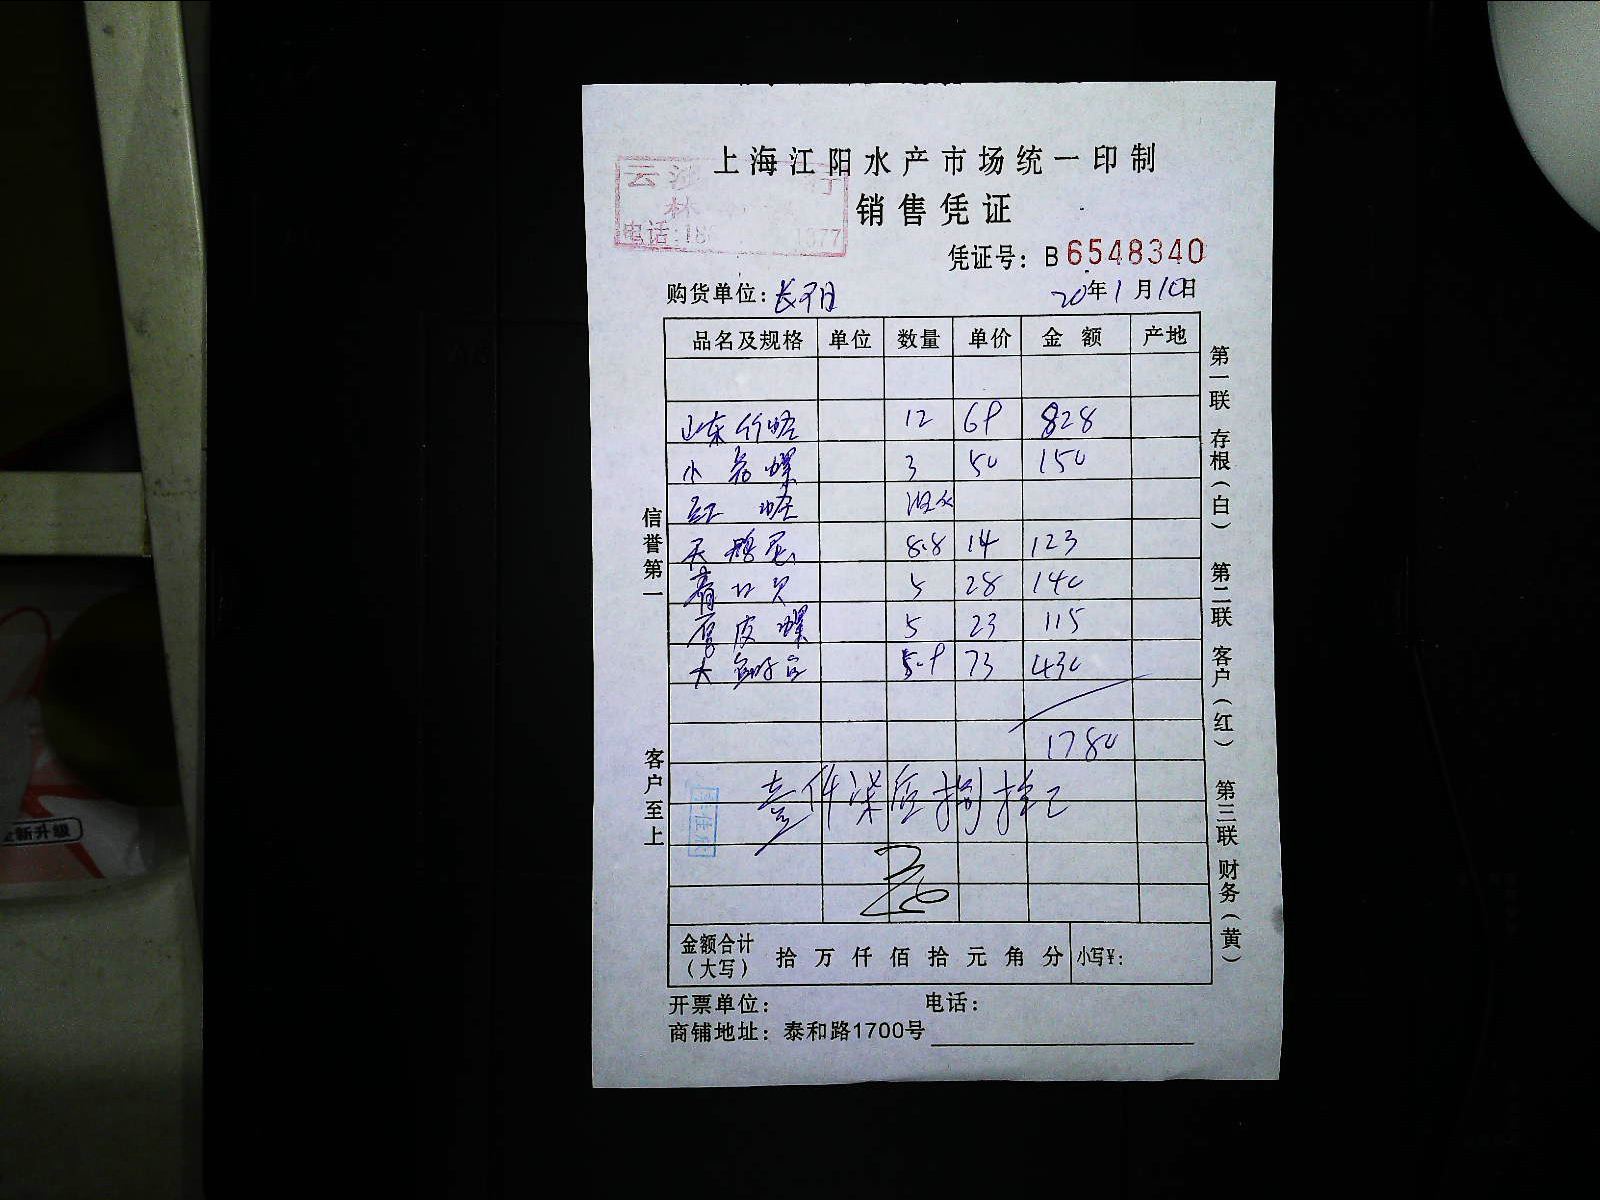 上海江阳水产市场统一印制
云
电话:18 1877
销售凭证
凭证号：B 6548340
购货单位：长阳
20年1月10日
品名及规格 单位 数量 单价 金额 产地
山东竹蛏 12 69 828
小 螺 3 50 150
红 蛏
天鹅 8.8 14 123
青口贝 5 28 140
厚皮螺 5 23 115
大 5.9 73 430
1780
壹仟柒佰捌拾
金额合计（大写） 拾万仟佰拾元角分 小写¥：
开票单位： 电话：
商铺地址：泰和路1700号
信誉第一
客户至上
第一联 存根（白） 第二联 客户（红） 第三联 财务（黄）
新升级